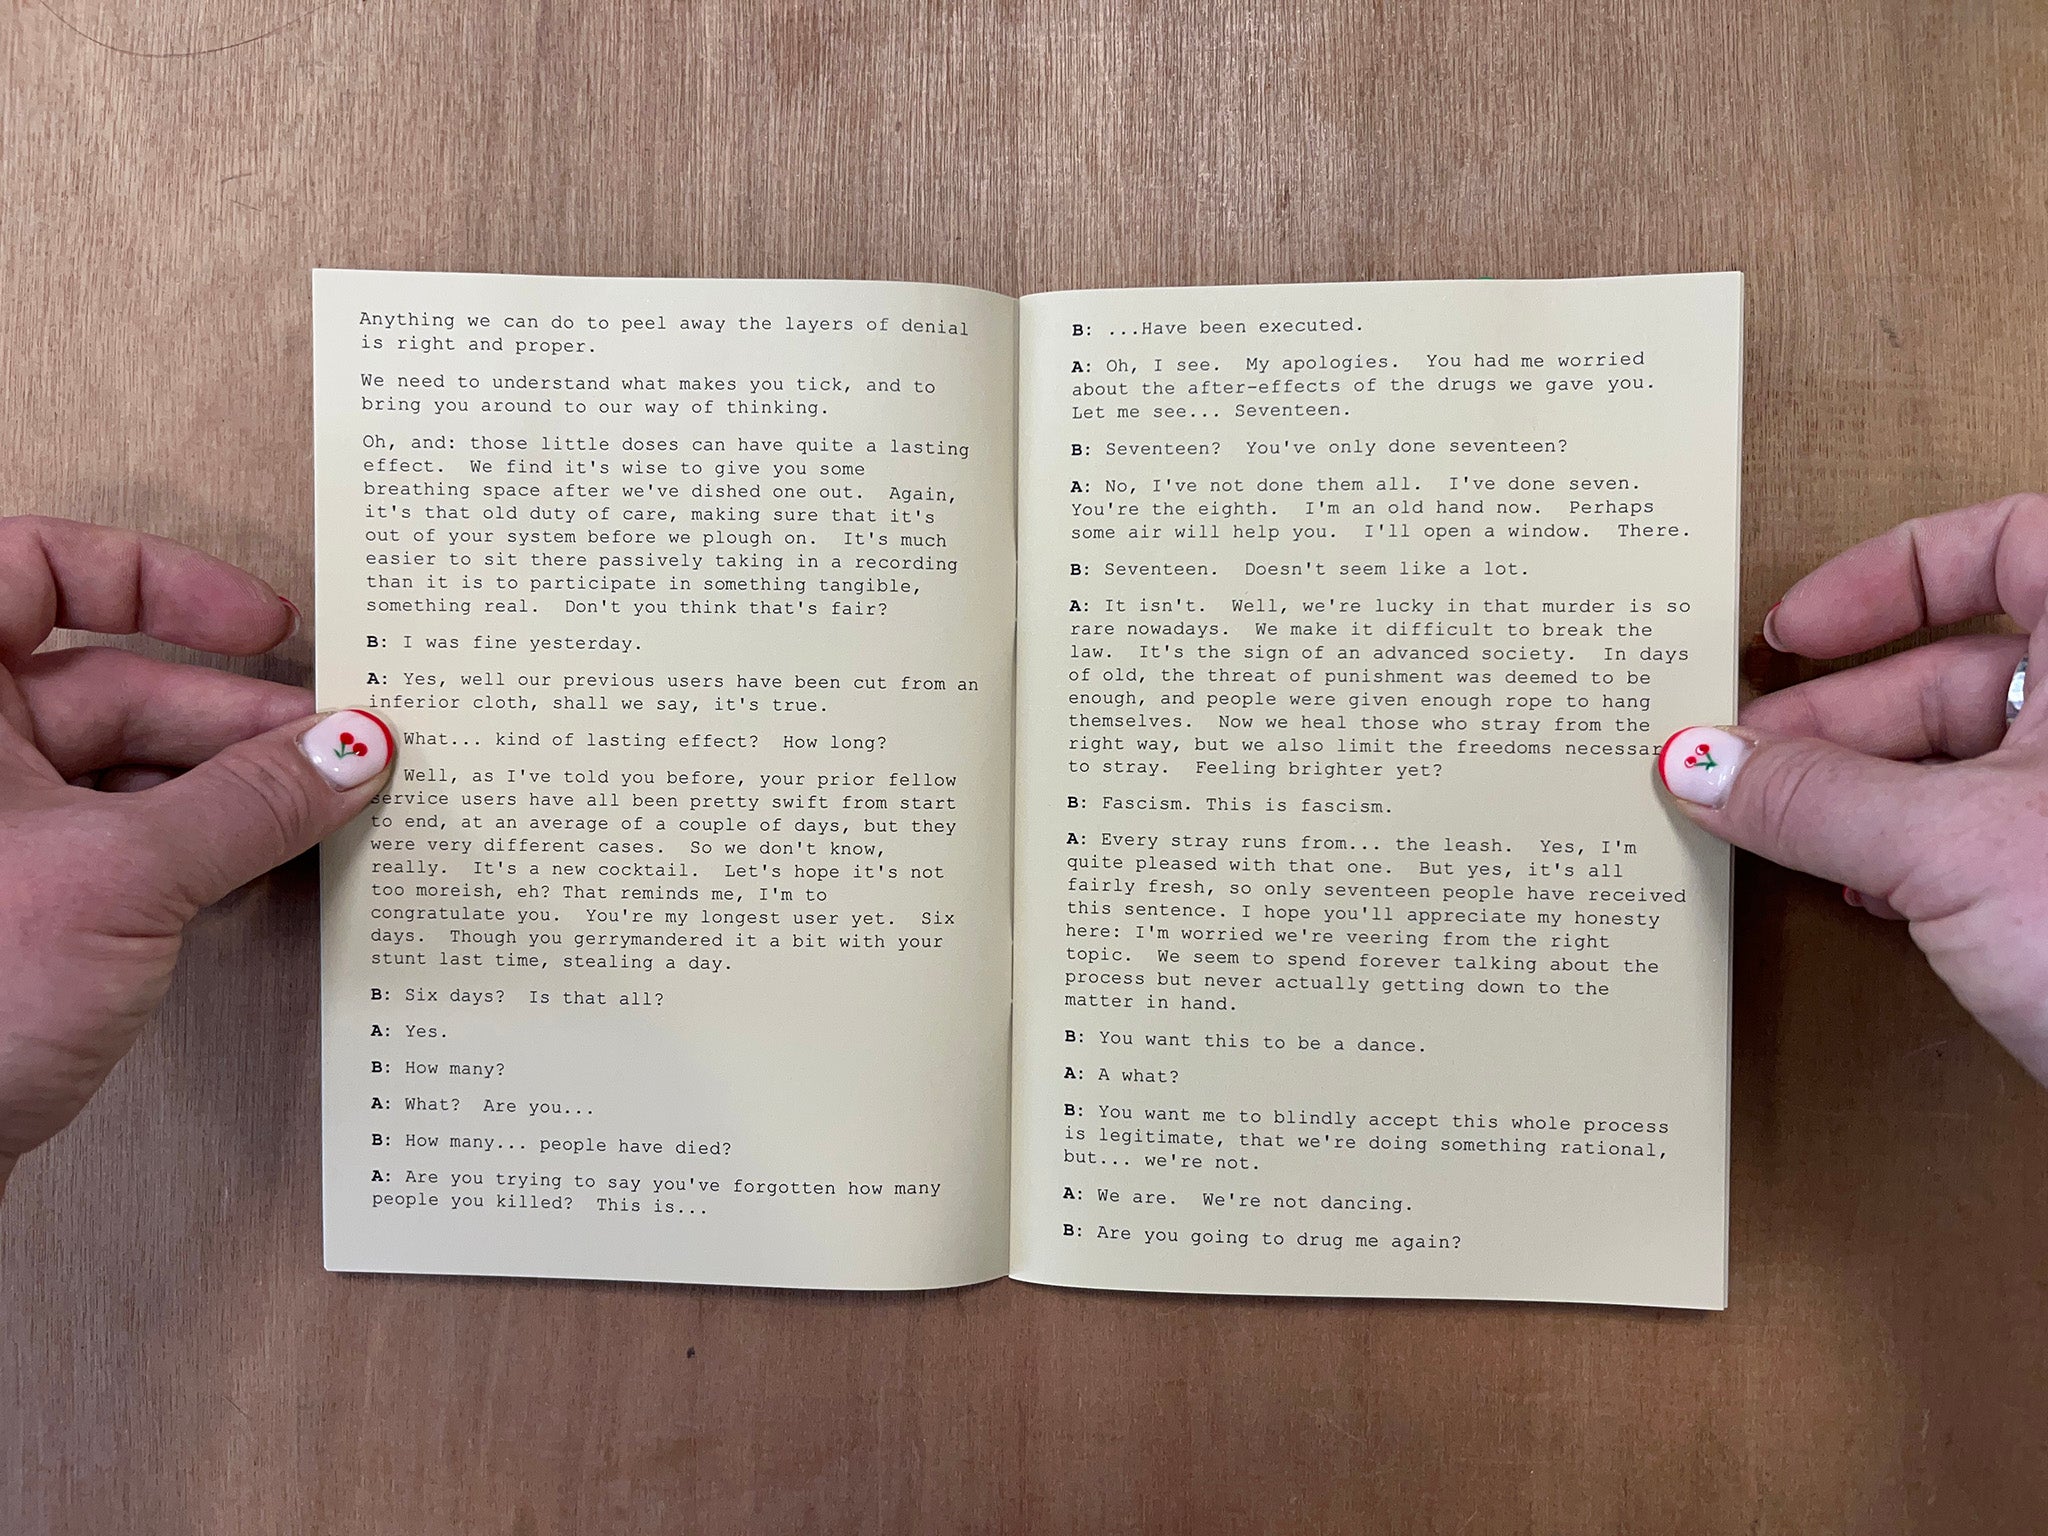 Anything we can do to peel away the layers of denial
is right and proper.
We need to understand what makes you tick, and to
bring you around to our way of thinking.
Oh, and: those little doses can have quite a lasting
effect.  We find it's wise to give you some
breathing space after we've dished one out.  Again,
it's that old duty of care, making sure that it's
out of your system before we plough on.  It's much
easier to sit there passively taking in a recording
than it is to participate in something tangible,
something real.  Don't you think that's fair?
B: I was fine yesterday.
A: Yes, well our previous users have been cut from an
inferior cloth, shall we say, it's true.
What... kind of lasting effect?  How long?
Well, as I've told you before, your prior fellow
service users have all been pretty swift from start
to end, at an average of a couple of days, but they
were very different cases.  So we don't know,
really.  It's a new cocktail.  Let's hope it's not
too moreish, eh? That reminds me, I'm to
congratulate you.  You're my longest user yet.  Six
days.  Though you gerrymandered it a bit with your
stunt last time, stealing a day.
B: Six days?  Is that all?
A: Yes.
B: How many?
A: What?  Are you...
B: How many... people have died?
A: Are you trying to say you've forgotten how many
people you killed?  This is...
B: ...Have been executed.
A: Oh, I see.  My apologies.  You had me worried
about the after-effects of the drugs we gave you.
Let me see... Seventeen.
B: Seventeen?  You've only done seventeen?
A: No, I've not done them all.  I've done seven.
You're the eighth.  I'm an old hand now.  Perhaps
some air will help you.  I'll open a window.  There.
B: Seventeen.  Doesn't seem like a lot.
A: It isn't.  Well, we're lucky in that murder is so
rare nowadays.  We make it difficult to break the
law.  It's the sign of an advanced society.  In days
of old, the threat of punishment was deemed to be
enough, and people were given enough rope to hang
themselves.  Now we heal those who stray from the
right way, but we also limit the freedoms necessar
to stray.  Feeling brighter yet?
B: Fascism. This is fascism.
A: Every stray runs from... the leash.  Yes, I'm
quite pleased with that one.  But yes, it's all
fairly fresh, so only seventeen people have received
this sentence. I hope you'll appreciate my honesty
here: I'm worried we're veering from the right
topic.  We seem to spend forever talking about the
process but never actually getting down to the
matter in hand.
B: You want this to be a dance.
A: A what?
B: You want me to blindly accept this whole process
is legitimate, that we're doing something rational,
but... we're not.
A: We are.  We're not dancing.
B: Are you going to drug me again?